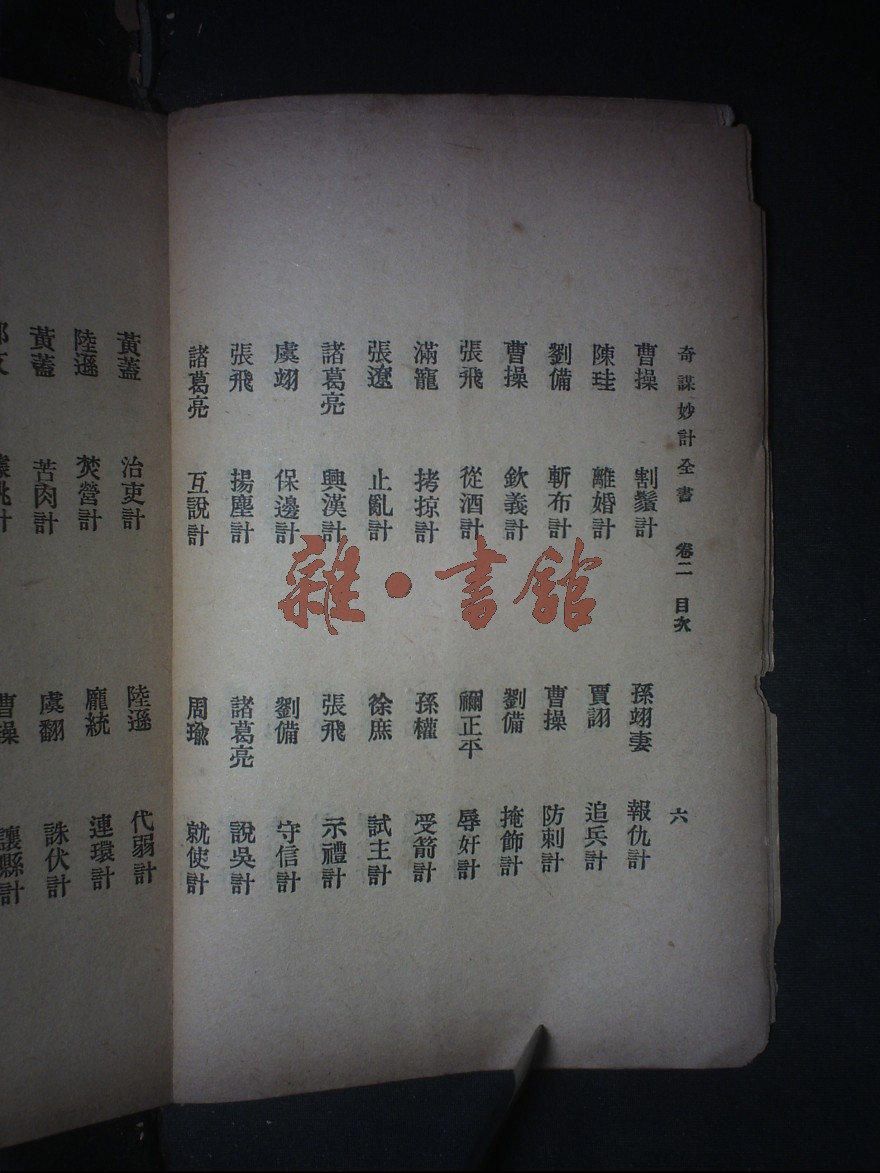 奇謀妙計全書 卷二 目次 六
曹操 割鬚計 孫翊妻 報仇計
陳珪 離婚計 賈詡 追兵計
劉備 斬布計 曹操 防刺計
曹操 欽義計 劉備 掩飾計
張飛 從酒計 禰正平 辱奸計
滿寵 拷掠計 孫權 受箭計
張遼 止亂計 徐庶 試主計
諸葛亮 興漢計 張飛 示禮計
虞翊 保邊計 劉備 守信計
張飛 揚塵計 諸葛亮 說吳計
諸葛亮 互說計 周瑜 就使計
黃蓋 治吏計 陸遜 代弱計
陸遜 焚營計 龐統 連環計
黃蓋 苦肉計 虞翻 誅伏計
計 曹操 讓縣計
雜·書館